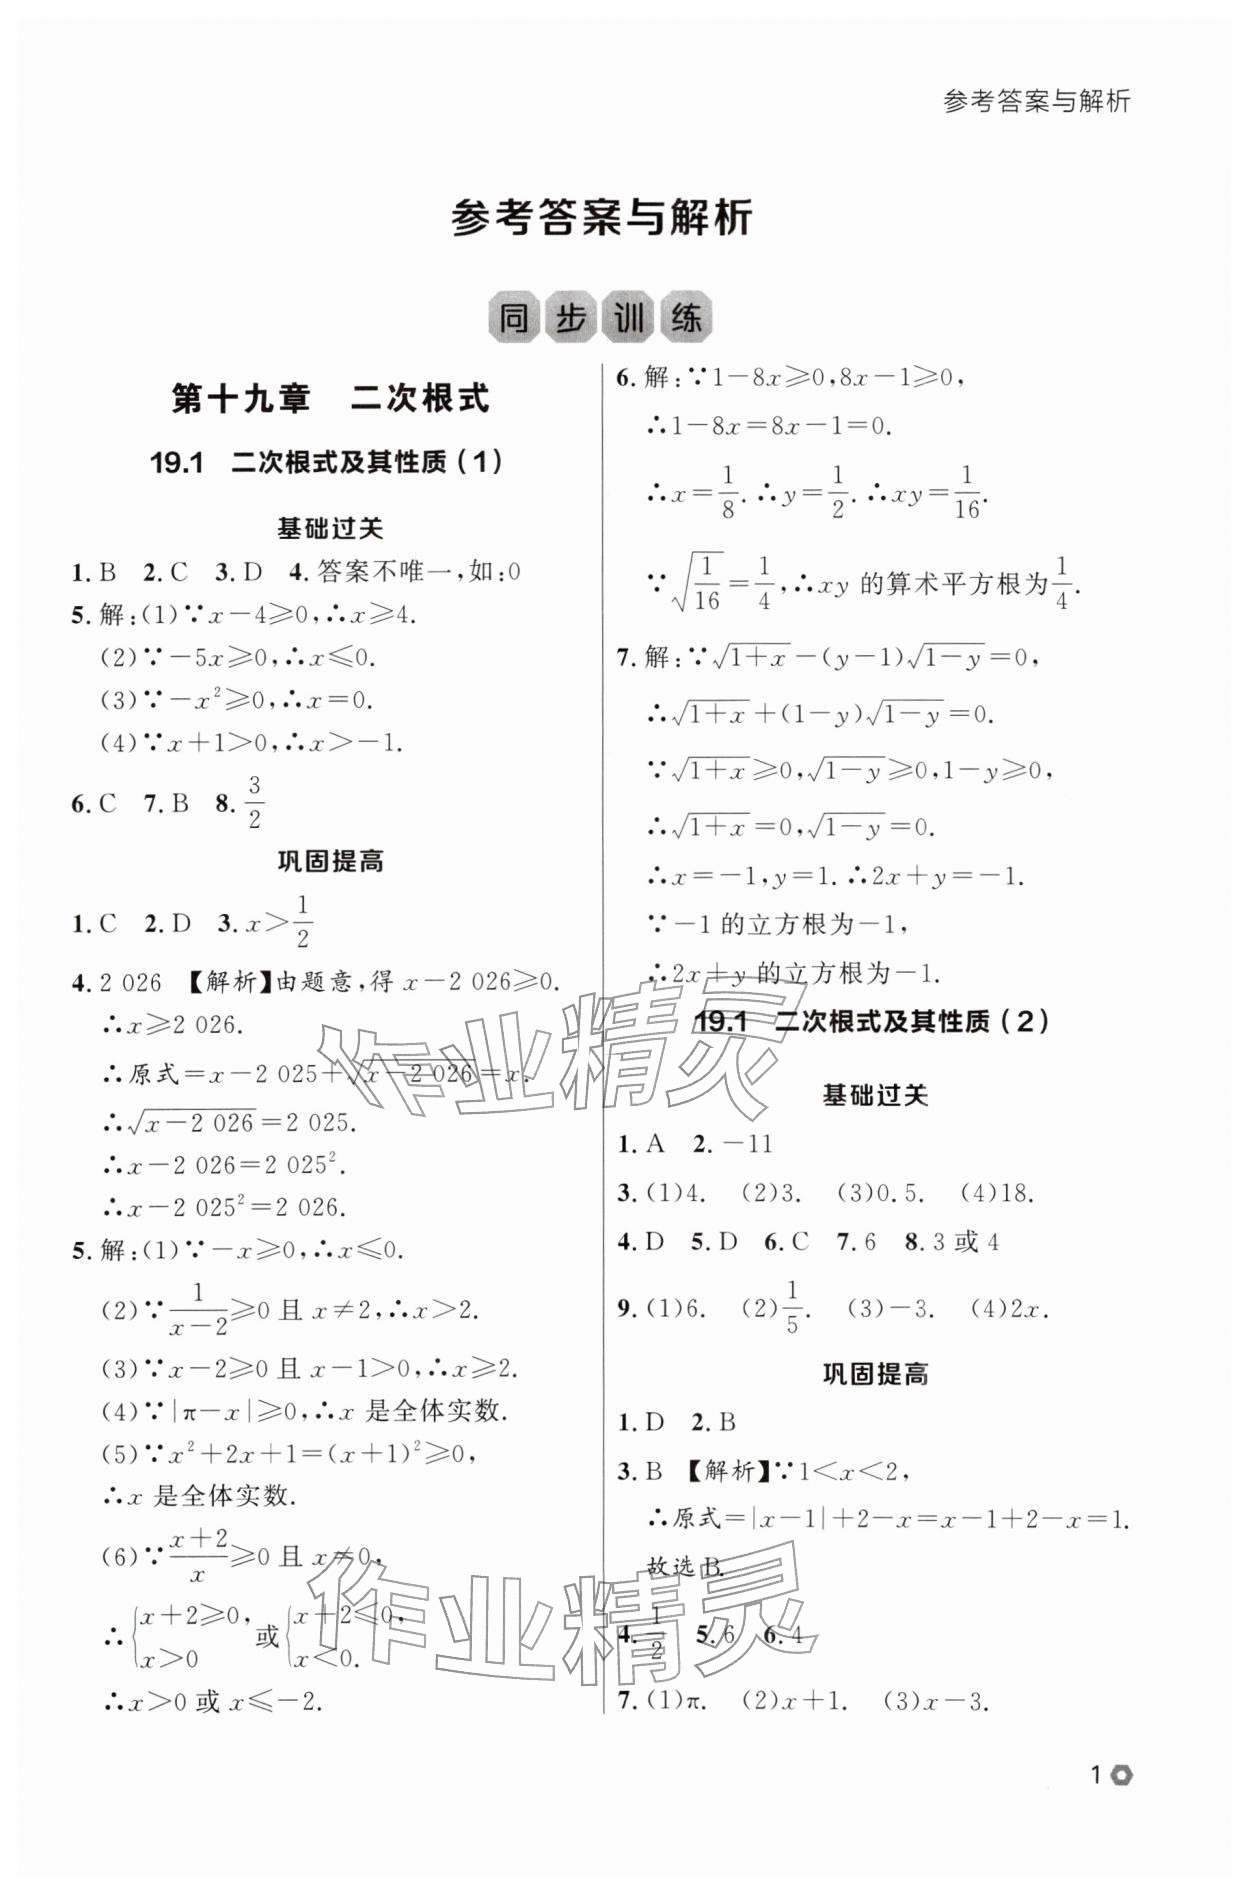 参考答案与解析
参考答案与解析
同步训练
第十九章 二次根式
19.1 二次根式及其性质(1)
基础过关
1. B 2. C 3. D 4. 答案不唯一,如:0
5. 解:(1)∵x-4≥0,∴x≥4.
(2)∵-5x≥0,∴x≤0.
(3)∵-x²≥0,∴x=0.
(4)∵x+1>0,∴x>-1.
6. C 7. B 8. 3/2
巩固提高
1. C 2. D 3. x>1/2
4. 2 026 【解析】由题意,得 x-2 026≥0.
∴x≥2 026.
∴原式=x-2 025+√(x-2 026)=x.
∴√(x-2 026)=2 025.
∴x-2 026=2 025².
∴x-2 025²=2 026.
5. 解:(1)∵-x≥0,∴x≤0.
(2)∵1/(x-2)≥0 且 x≠2,∴x>2.
(3)∵x-2≥0 且 x-1>0,∴x≥2.
(4)∵|π-x|≥0,∴x 是全体实数.
(5)∵x²+2x+1=(x+1)²≥0,
∴x 是全体实数.
(6)∵(x+2)/x≥0 且 x≠0,
∴{x+2≥0, x>0 或 {x+2≤0, x<0.
∴x>0 或 x≤-2.
6. 解:∵1-8x≥0,8x-1≥0,
∴1-8x=8x-1=0.
∴x=1/8. ∴y=1/2. ∴xy=1/16.
∵√(1/16)=1/4,∴xy 的算术平方根为1/4.
7. 解:∵√(1+x)-(y-1)√(1-y)=0,
∴√(1+x)+(1-y)√(1-y)=0.
∵√(1+x)≥0,√(1-y)≥0,1-y≥0,
∴√(1+x)=0,√(1-y)=0.
∴x=-1,y=1. ∴2x+y=-1.
∵-1 的立方根为-1,
∴2x+y 的立方根为-1.
19.1 二次根式及其性质(2)
基础过关
1. A 2. -11
3. (1)4. (2)3. (3)0.5. (4)18.
4. D 5. D 6. C 7. 6 8. 3 或 4
9. (1)6. (2)1/5. (3)-3. (4)2x.
巩固提高
1. D 2. B
3. B 【解析】∵1<x<2,
∴原式=|x-1|+2-x=x-1+2-x=1.
故选 B.
4. 1/2 5. 6 6. 4
7. (1)π. (2)x+1. (3)x-3.
1
作业精灵
作业精灵